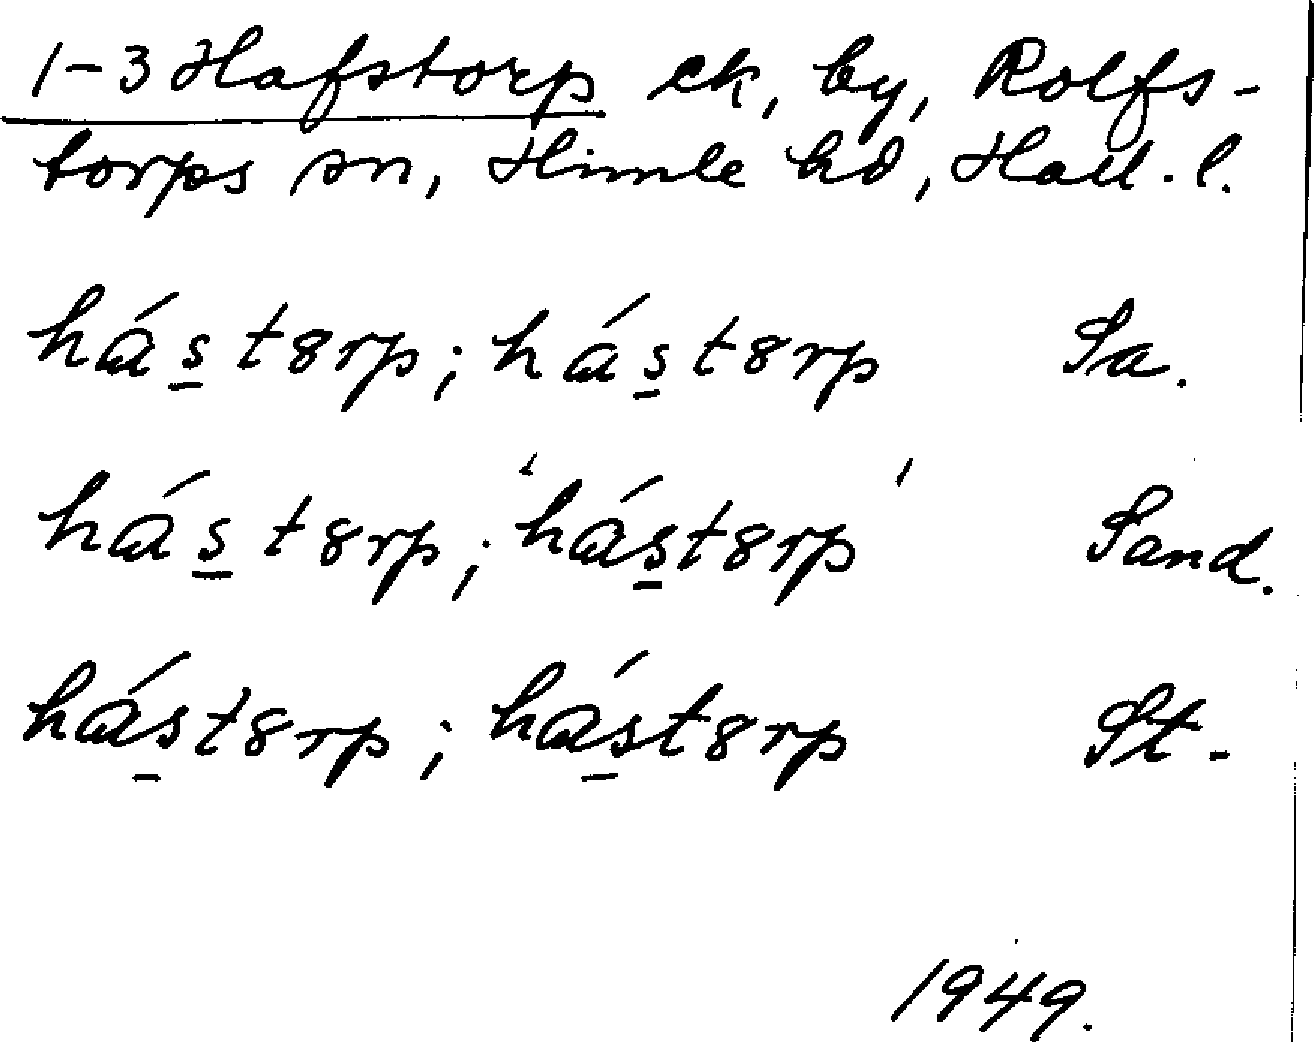 1-3 Hafstorp ek, by, Rolfs-
torps sn, Himle hd, Hall. l.
hás̲t8rp; hás̲t8rp Sa.
hás̲t8rp; 'hás̲t8rp' Sand.
hás̲t8rp; hás̲t8rp St.
1949.